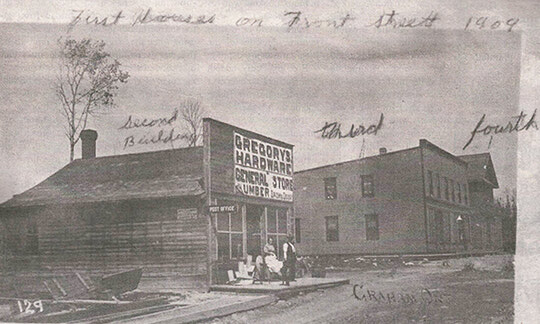 First Houses on Front Street 1909
Second
Building
third
fourth
GREGORY'S
HARDWARE
GENERAL STORE
LUMBER
POST OFFICE
GRAHAM
129